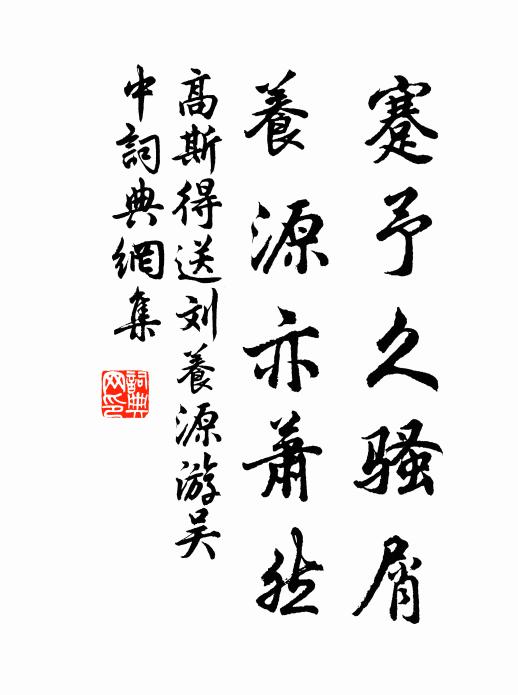 蹇予久骚屑
養源亦蕭然
高斯得送刘養源游吴
中詞典網集
詞典
网印